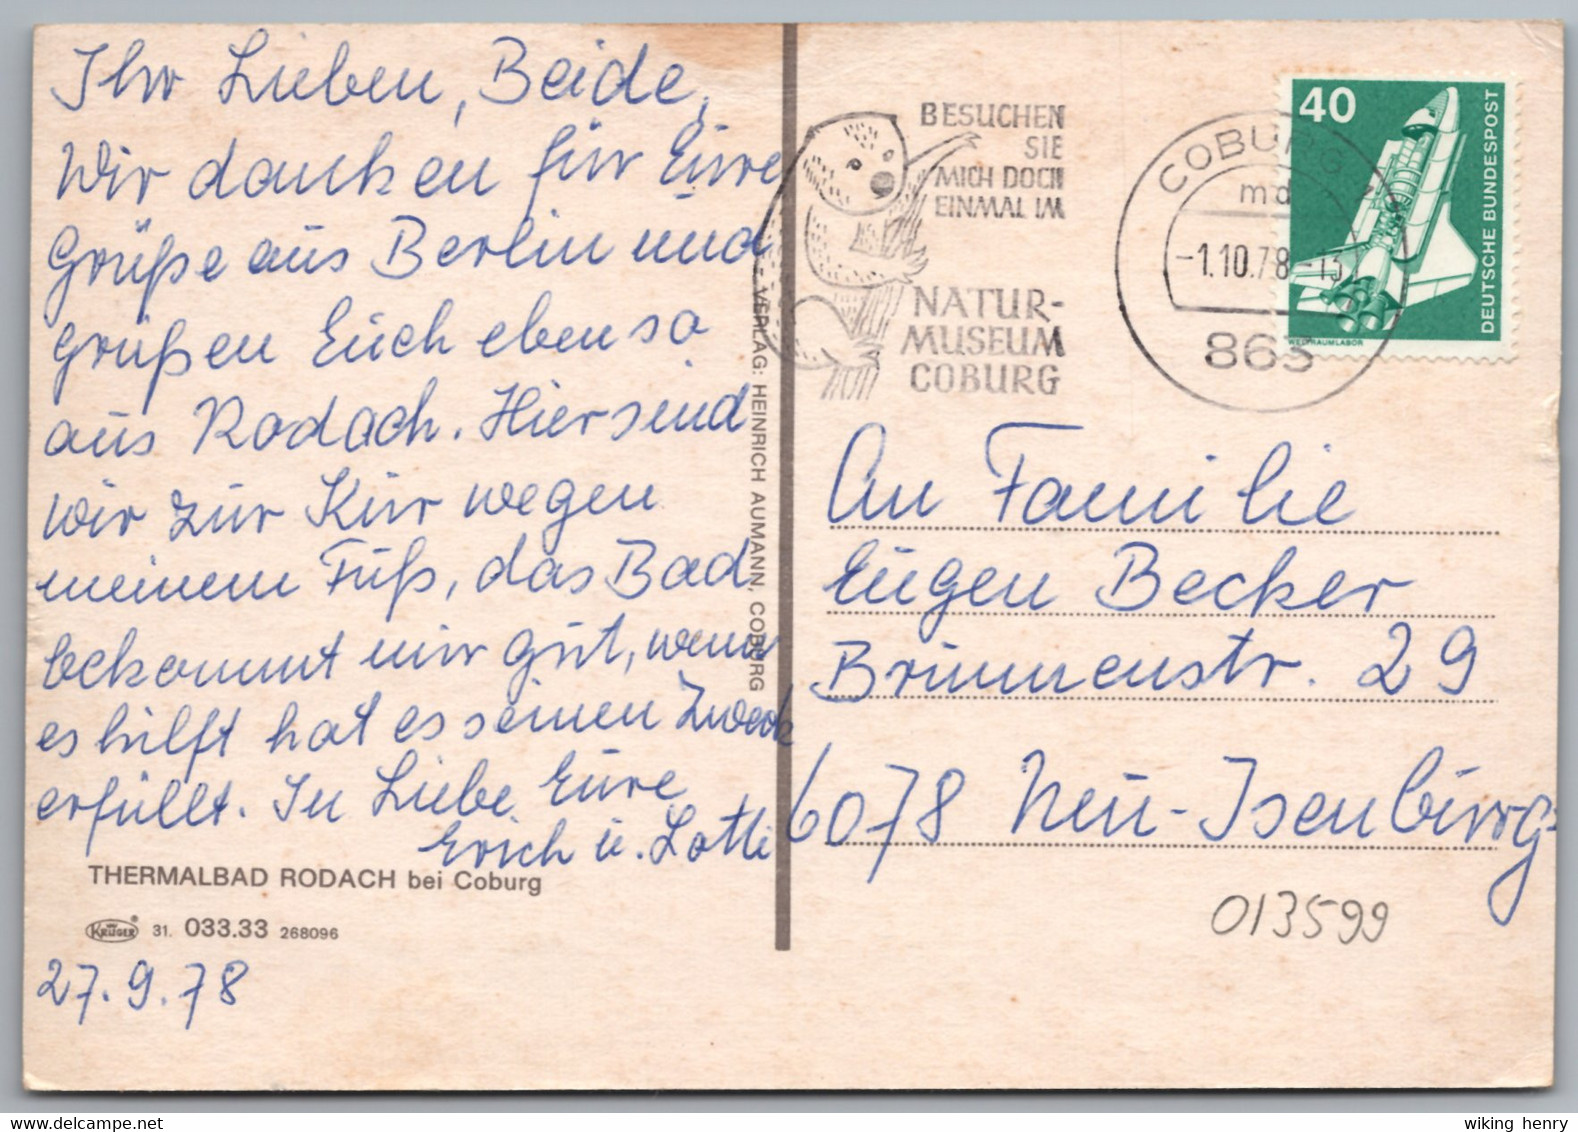 Ihr Lieben, Beide,
Wir danken für Eure
Grüße aus Berlin und
grüßen Euch ebenso
aus Rodach. Hier sind
wir zur Kur wegen
meinem Fuß, das Bad
bekommt mir gut, wenn
es hilft hat es seinen Zweck
erfüllt. In Liebe Eure
Erich u. Lotti
THERMALBAD RODACH bei Coburg
KRÜGER® 31. 033.33 268096
27.9.78
VERLAG: HEINRICH AUMANN, COBURG
BESUCHEN
SIE
MICH DOCH
EINMAL IM
NATUR-
MUSEUM
COBURG
COBURG
md
-1.10.78-13
863
40
DEUTSCHE BUNDESPOST
WELTRAUMLABOR
An Familie
Eugen Becker
Brunnenstr. 29
6078 Neu-Isenburg
013599
wiking henry